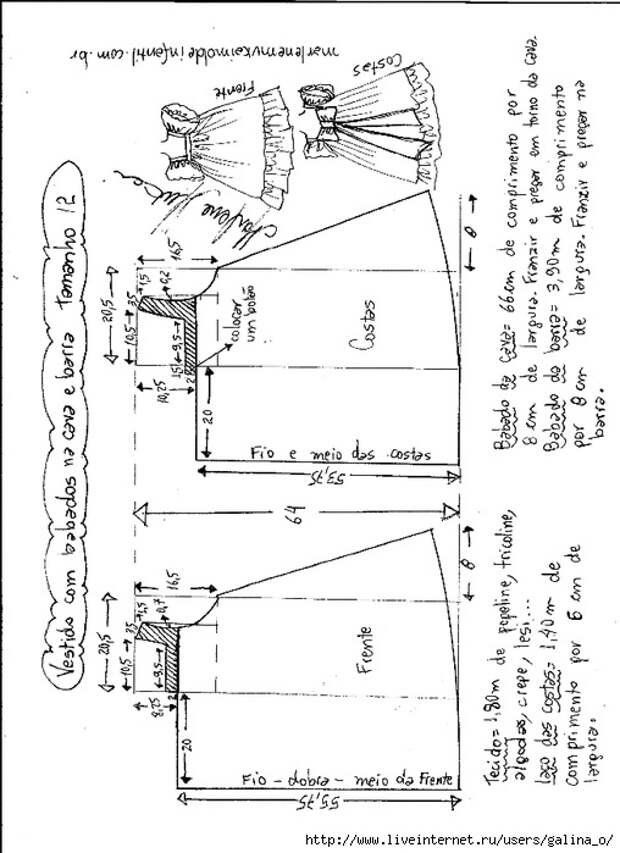 Vestido com babados na cava e barra tamanho 12
marlenemukaimoldeinfantil.com.br
Frente
Costas
Marlene
20,5
10,5
3,5
1,5
0,2
16,5
9,5
1,5
2
10,25
20
colocar
um botão
Costas
Fio e meio das costas
53,75
8
64
20,5
10,5
3,5
1,5
0,7
16,5
9,5
2
8,25
20
Frente
Fio - dobra - meio da frente
55,75
8
Babado da cava = 66cm de comprimento por
8 cm de largura. Franzir e pregar em torno da cava.
Babado da barra = 3,90m de comprimento
por 8 cm de largura. Franzir e pregar na
barra.
Tecido = 1,80m de popeline, tricoline,
algodão, crepe, lesi...
laço das costas = 1,40m de
comprimento por 6 cm de
largura.
http://www.liveinternet.ru/users/galina_o/